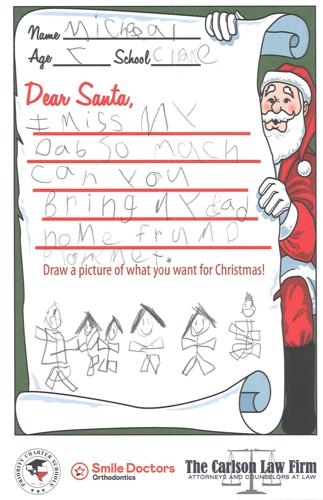 Name Micheal
Age School Clarke
Dear Santa,
I miss MY
Dad So much
Can you
Bring MY dad
home frum D
Ploymet.
Draw a picture of what you want for Christmas!
PRIORITY CHARTER SCHOOLS
Smile Doctors
Orthodontics
The Carlson Law Firm
ATTORNEYS AND COUNSELORS AT LAW